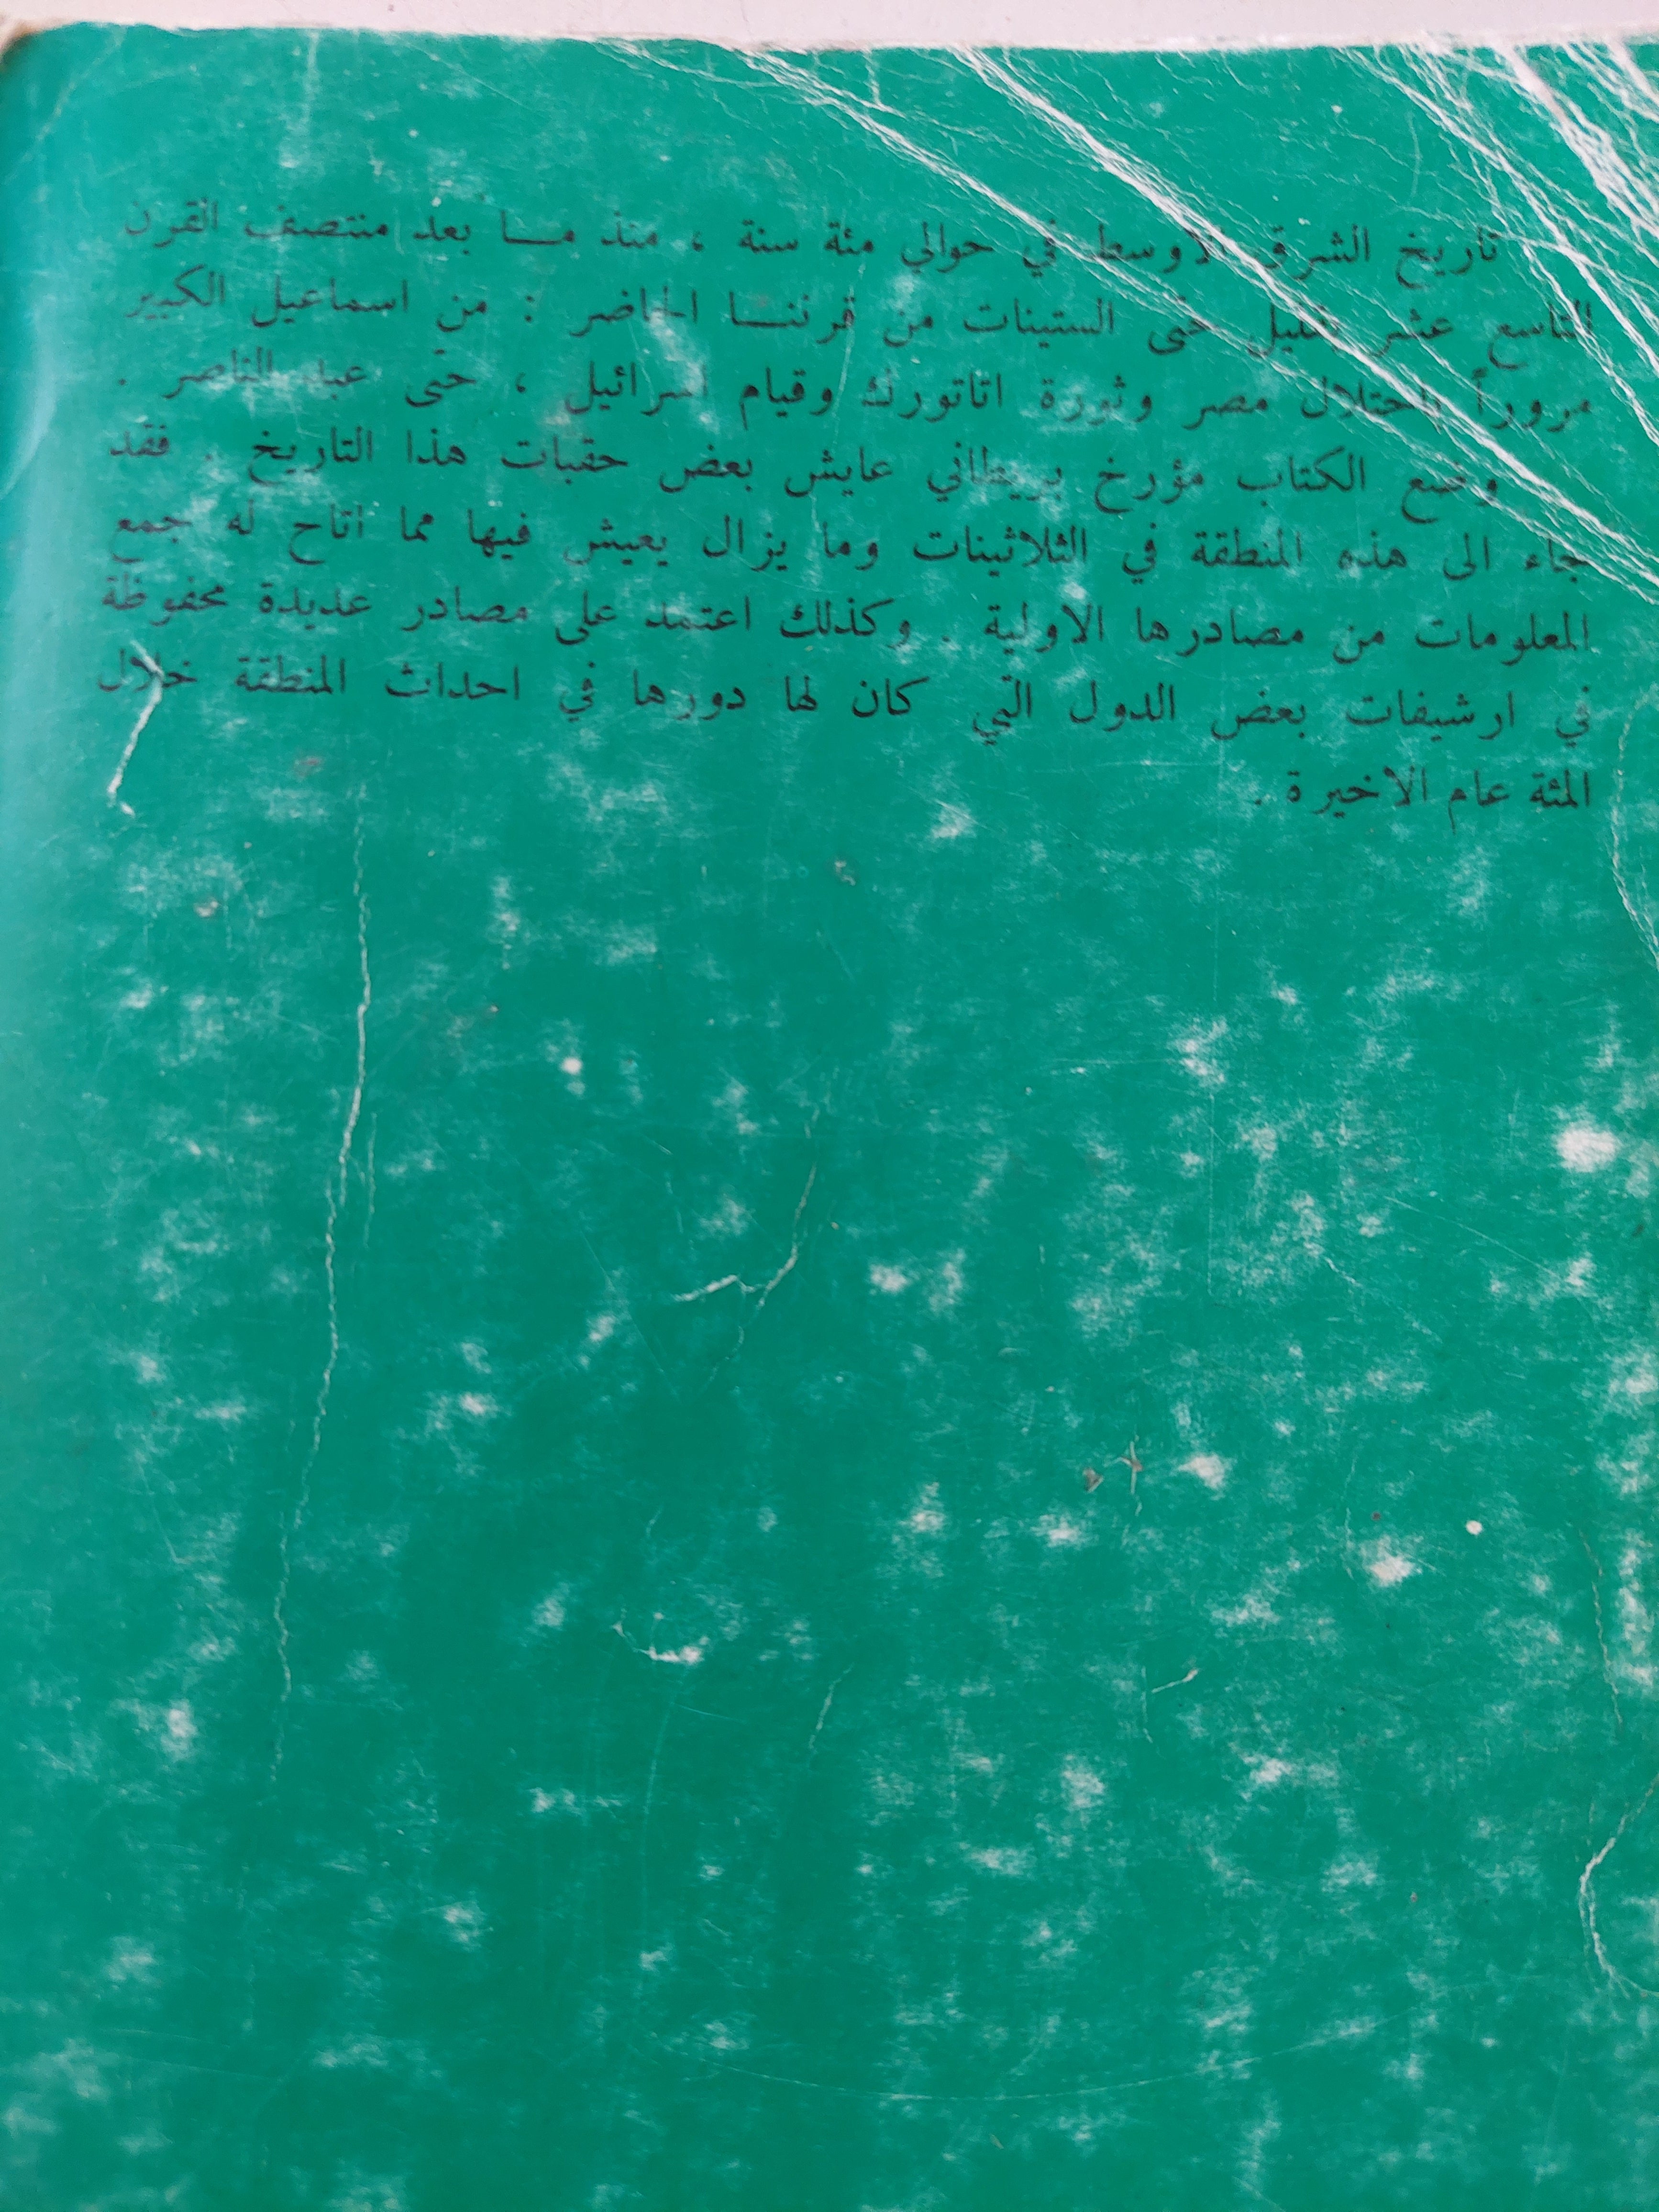 تاريخ الشرق الاوسط في حوالي مئة سنة ، منذ مـــا بعد منتصف القرن
التاسع عشر بقليل حتى الستينات من قرننـــا الحاضر : من اسماعيل الكبير
مروراً باحتلال مصر وثورة اتاتورك وقيام اسرائيل ، حتى عبد الناصر .
وضع الكتاب مؤرخ بريطاني عايش بعض حقبات هذا التاريخ . فقد
جاء الى هذه المنطقة في الثلاثينات وما يزال يعيش فيها مما اتاح له جمع
المعلومات من مصادرها الاولية . وكذلك اعتمد على مصادر عديدة محفوظة
في ارشيفات بعض الدول التي كان لها دورها في احداث المنطقة خلال
المئة عام الاخيرة .